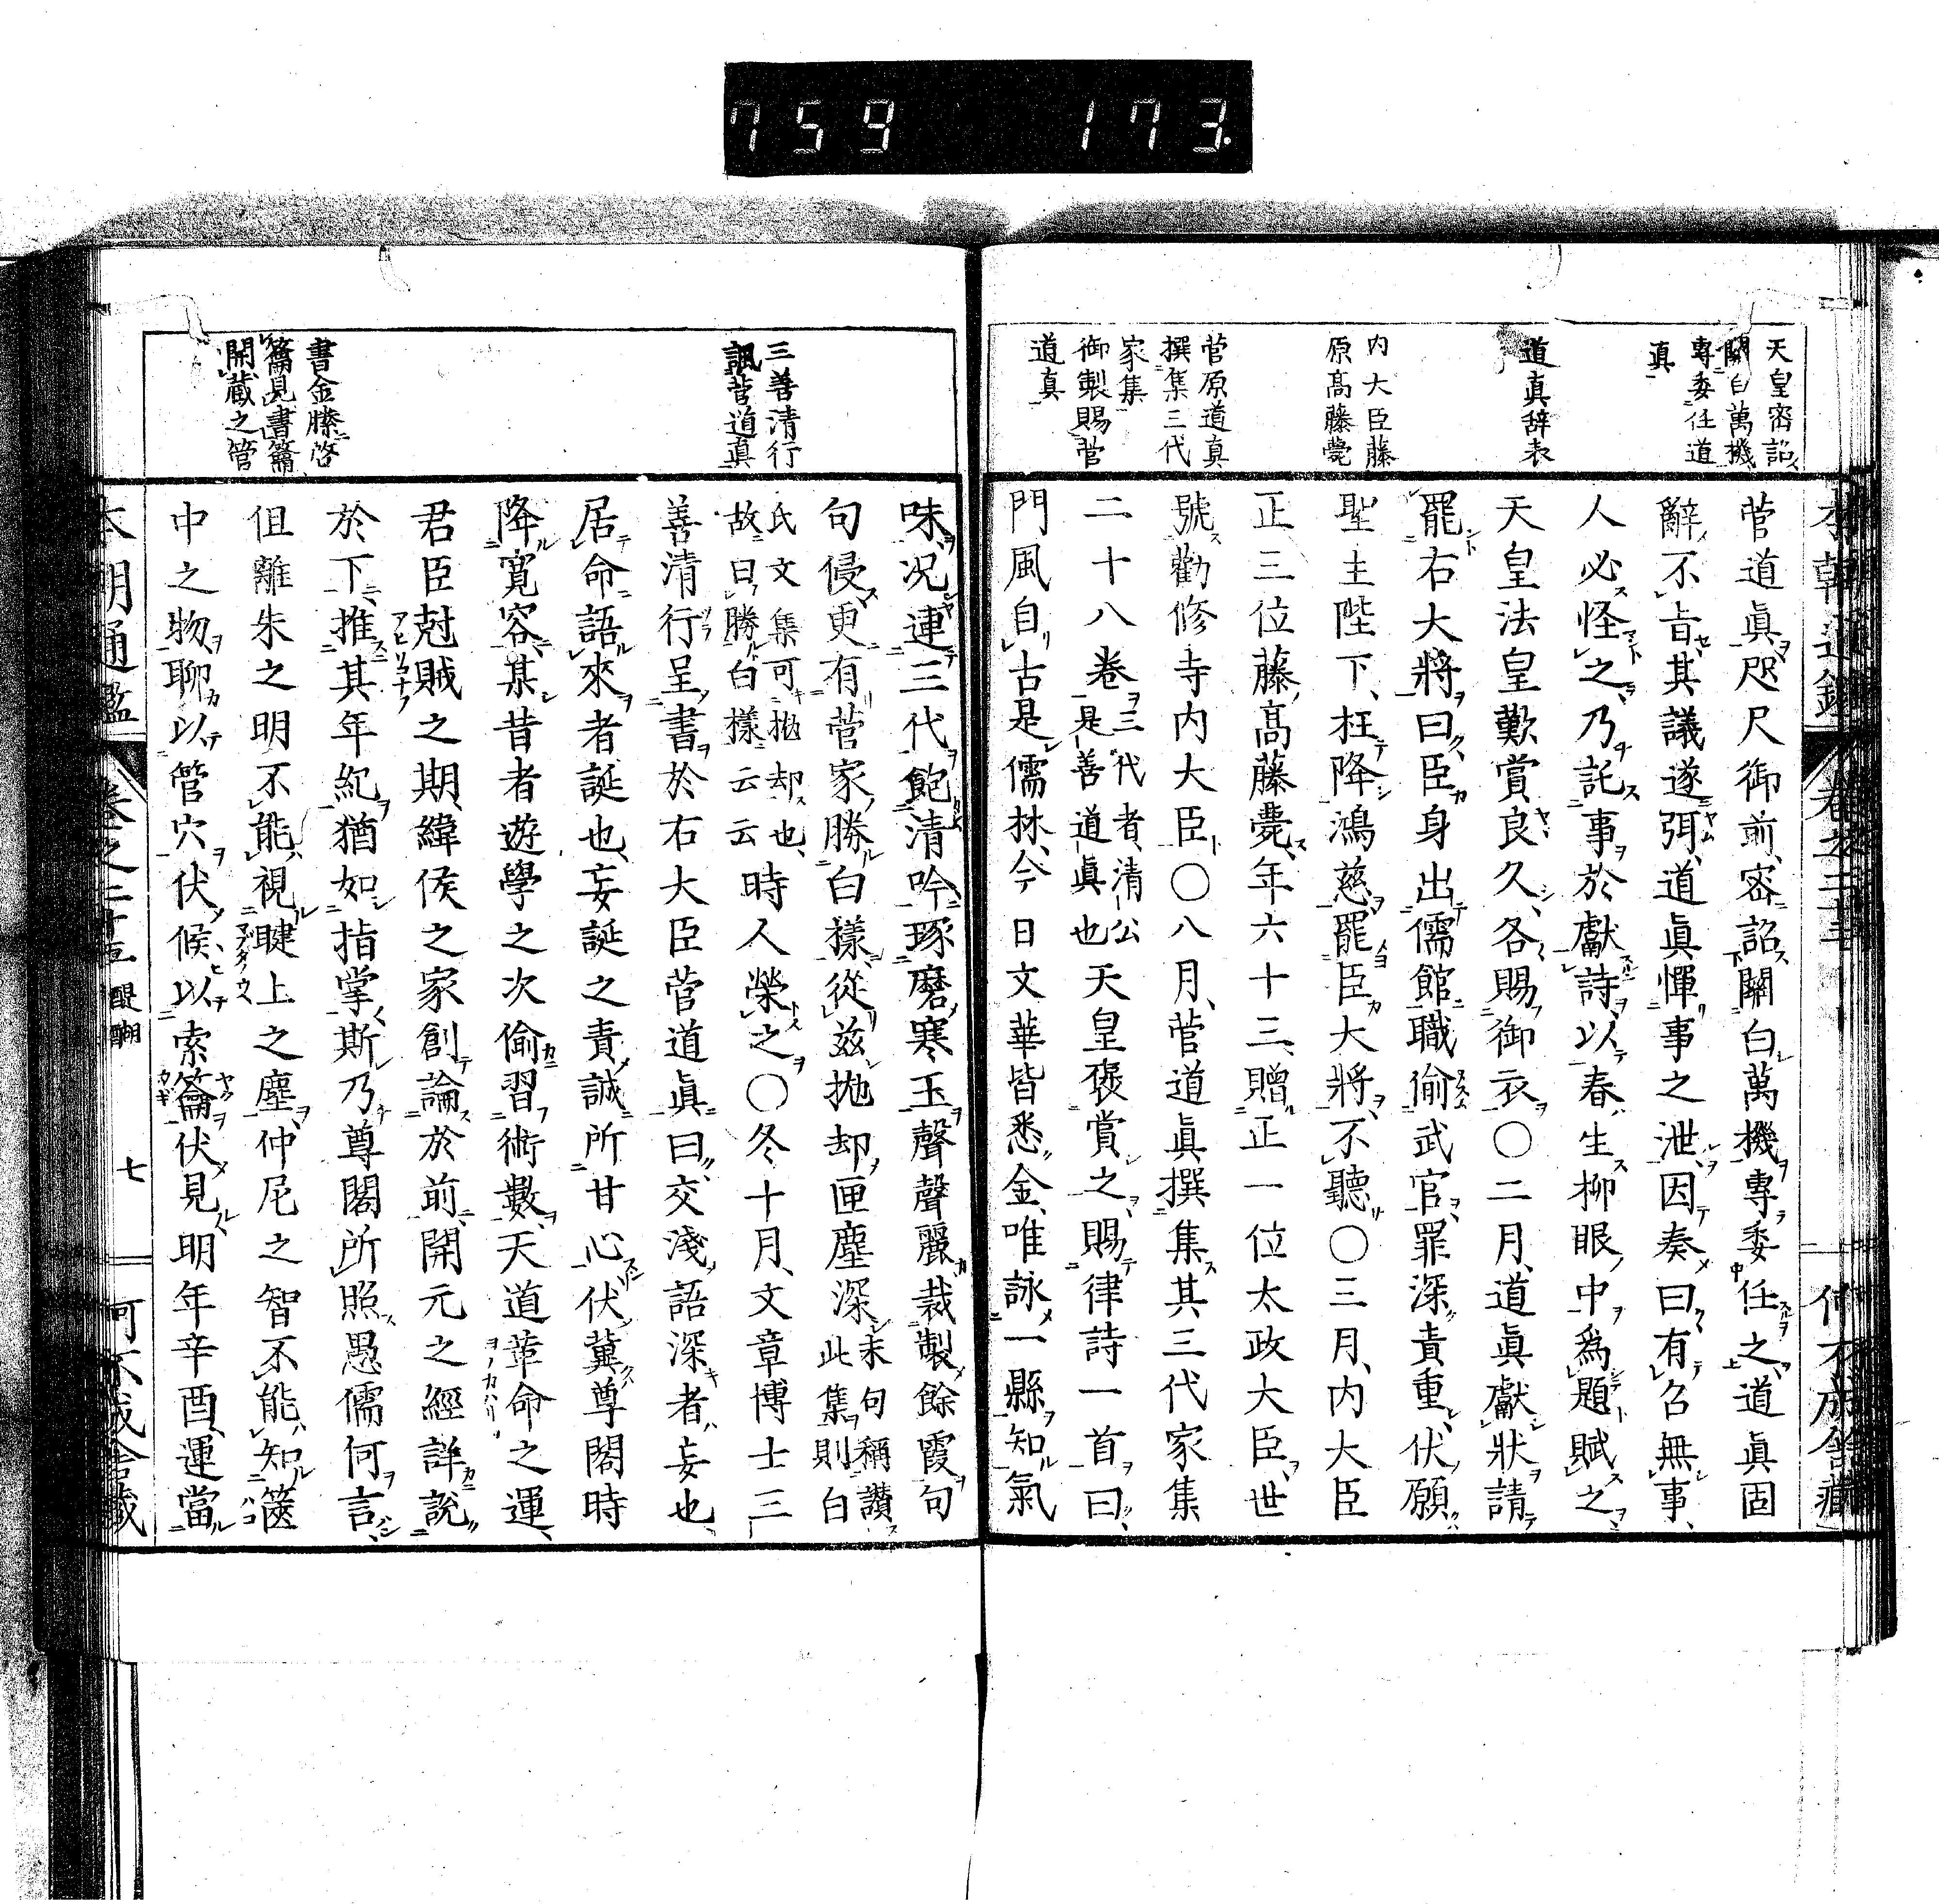 759 173.
天皇密詔
關白萬機
專委任道
真
道真辞表
内大臣藤
原髙藤薨
菅原道真
撰集三代
家集
御製賜菅
道真
菅道眞咫尺御前密詔關白萬機專委任之道眞固
辭不肯其議遂弭道眞憚事之泄因奏曰有召無事
人必怪之乃託事於獻詩以春生柳眼中爲題賦之
天皇法皇歎賞良久各賜御衣〇二月道眞獻狀請
罷右大將曰臣身出儒館職偷武官罪深責重伏願
聖主陛下枉降鴻慈罷臣大將不聽〇三月内大臣
正三位藤髙藤薨年六十三贈正一位太政大臣世
號勸修寺内大臣〇八月菅道眞撰集其三代家集
二十八卷三代者清公是善道眞也天皇褒賞之賜律詩一首曰
門風自古是儒林今日文華皆悉金唯詠一縣知氣
三善清行
諷菅道真
書金縢啓
籥見書籥
開藏之管
味况連三代飽清吟琢磨寒玉聲聲麗裁製餘霞句
句侵更有菅家勝白樣從茲拋却匣塵深末句稱讚此集則白
氏文集可拋却也故曰勝白樣云云時人榮之〇冬十月文章博士三
善清行呈書於右大臣菅道眞曰交淺語深者妄也
居命語來者誕也妄誕之責誠所甘心伏冀尊閤時
降寬容某昔者遊學之次偷習術數天道革命之運
君臣尅賊之期緯候之家創論於前開元之經詳說
於下推其年紀猶如指掌斯乃尊閤所照愚儒何言
伹離朱之明不能視睫上之塵仲尼之智不能知篋
中之物聊以管穴伏候以索籥伏見明年辛酉運當
本朝通鑑 卷之二十五 醍醐 七